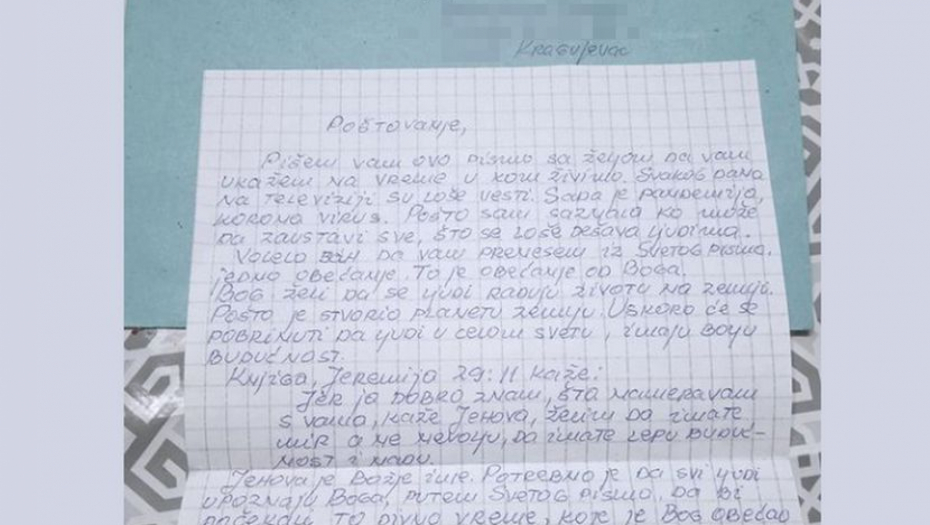 Kragujevac
Poštovanje,
Pišem vam ovo pismo sa željom da vam
ukažem na vreme u kom živimo. Svakog dana
na televiziji su loše vesti. Sada je pandemija,
korona virus. Pošto sam saznala ko može
da zaustavi sve, što se loše dešava ljudima.
Volela bih da vam prenesem iz Svetog pisma,
jedno obećanje. To je obećanje od Boga.
Bog želi da se ljudi raduju životu na zemlji.
Pošto je stvorio planetu zemlju. Uskoro će se
pobrinuti da ljudi u celom svetu, imaju bolju
budućnost.
Knjiga, Jeremija 29:11 kaže:
Jer ja dobro znam, šta nameravam
s vama, kaže Jehova, želim da imate
mir a ne nevolju, da imate lepu buduć-
nost i nadu.
Jehova je Božje ime. Potrebno je da svi ljudi
upoznaju Boga, putem Svetog pisma, da bi
dočekali to divno vreme, koje je Bog obećao